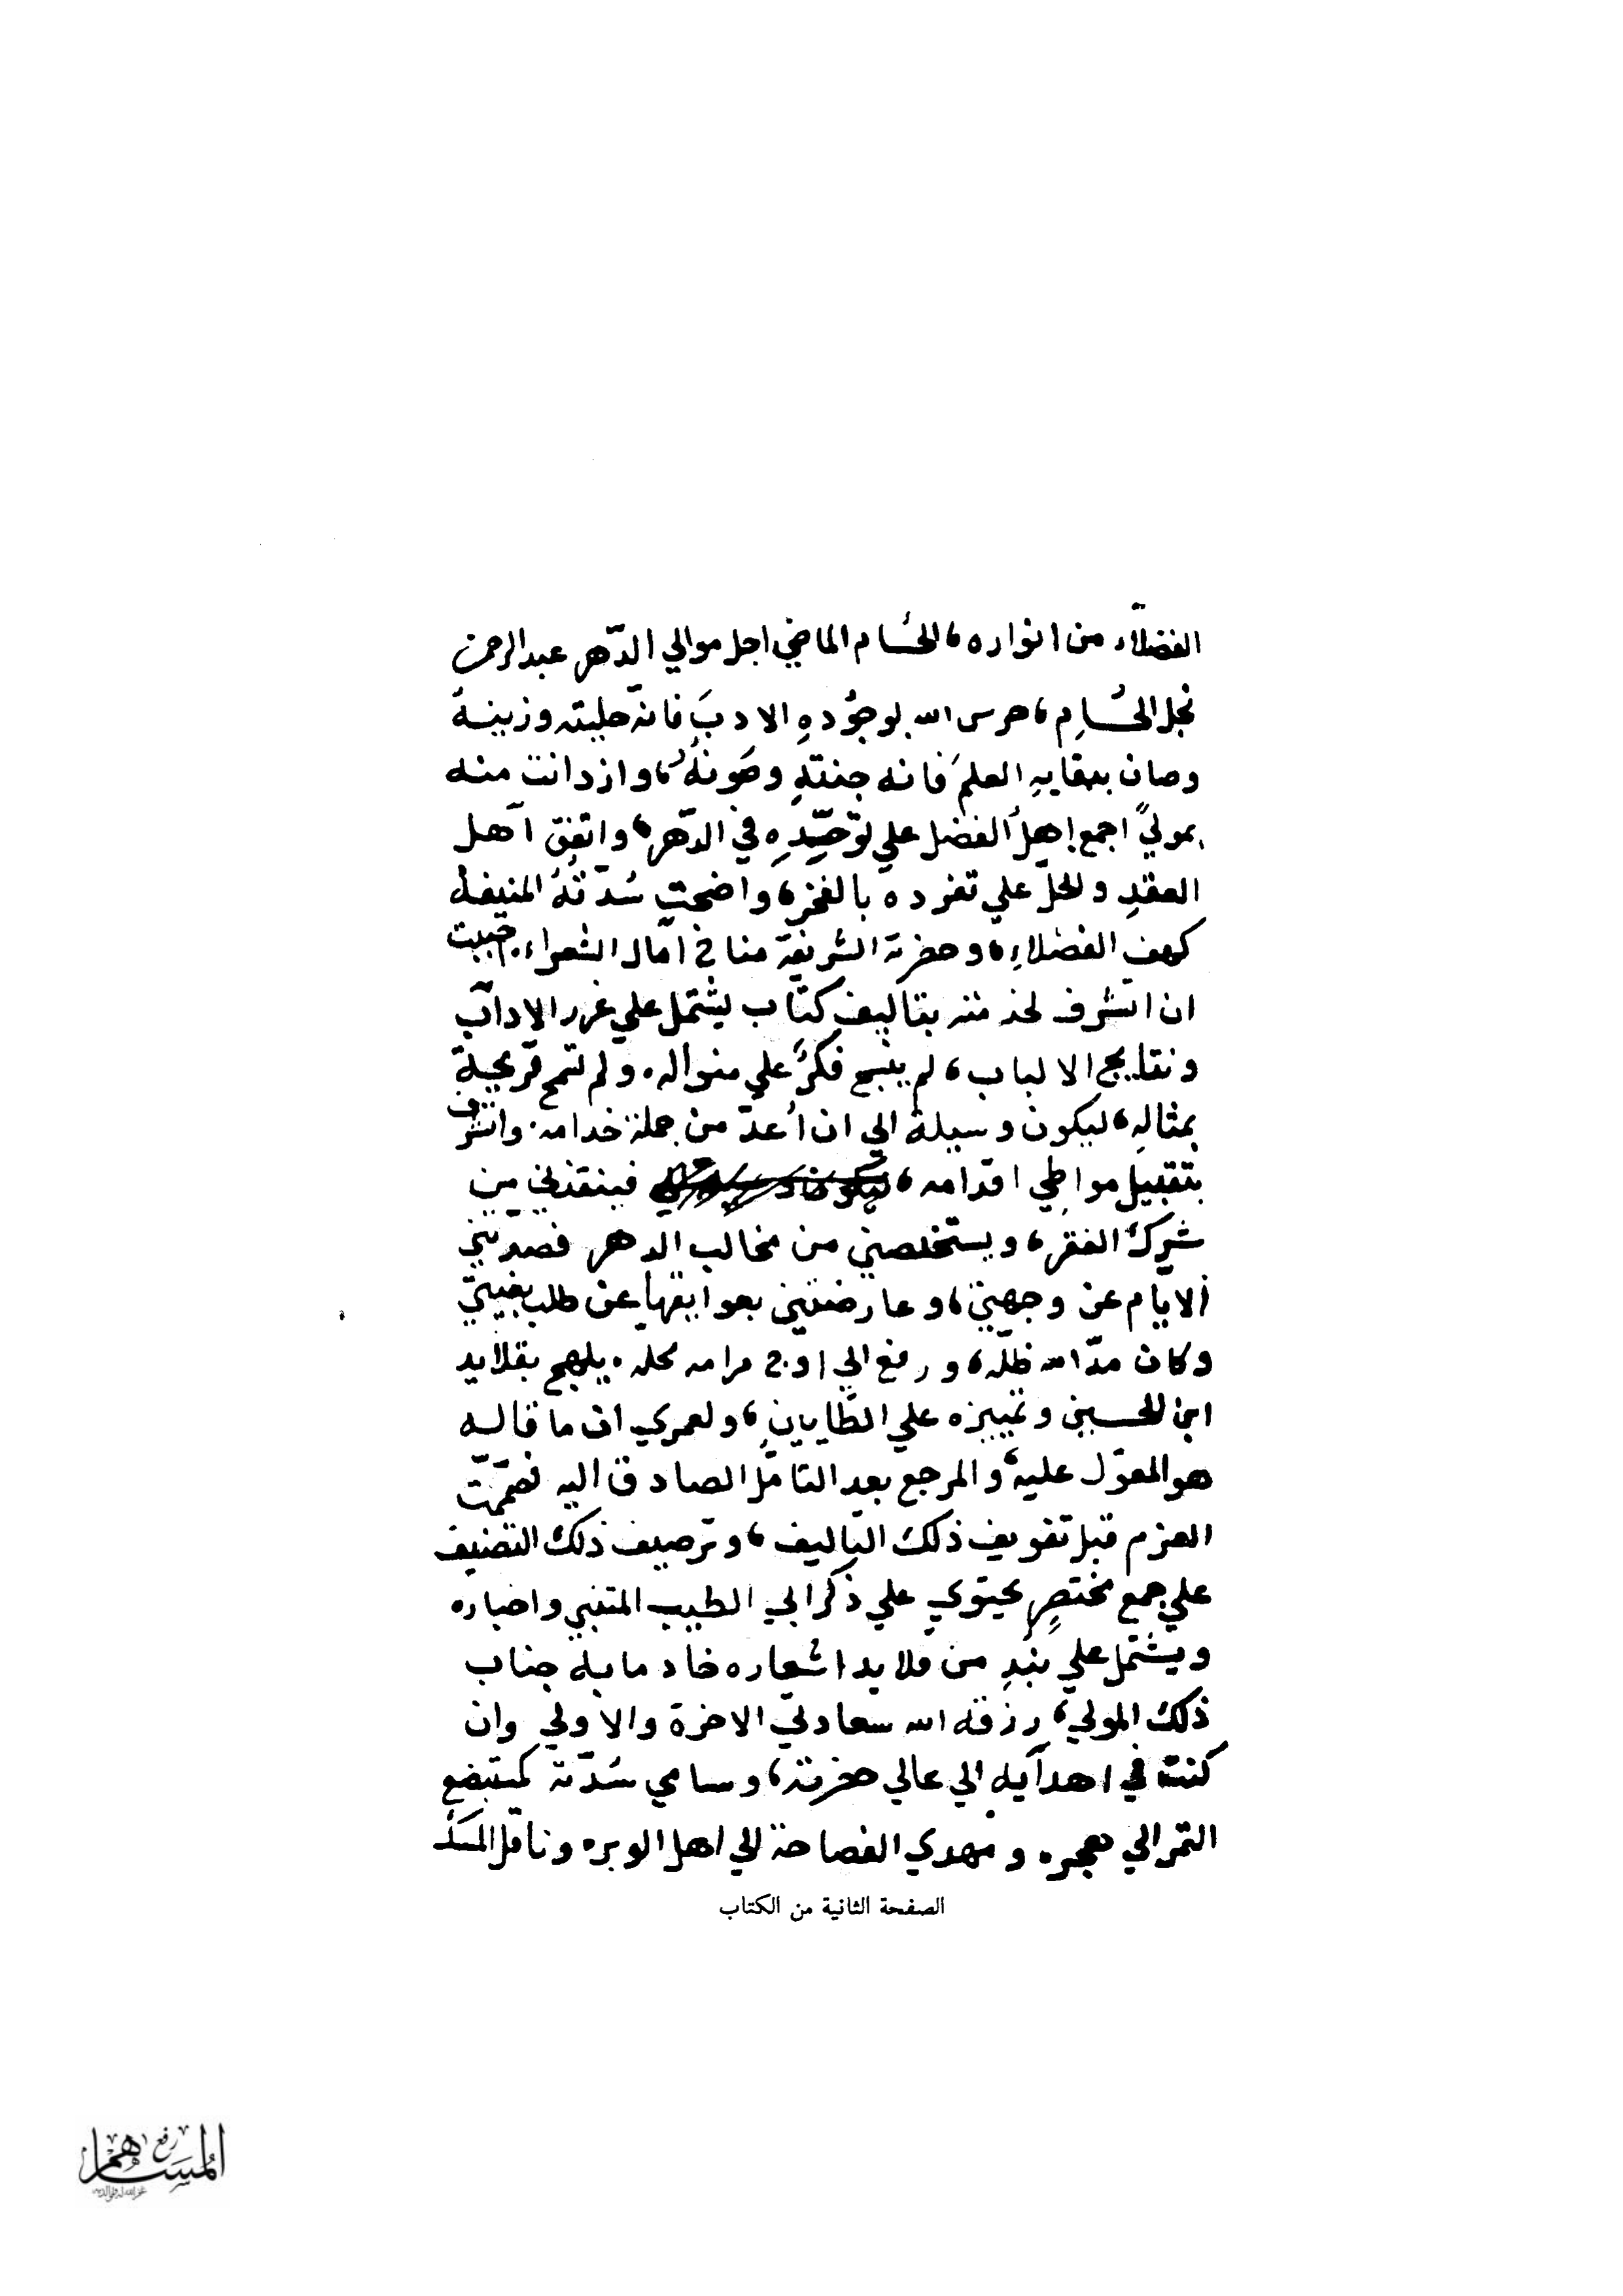 الفضلاء من انواره، الحُسام الماضي اجل موالي الدّهر عبدالرحمن
نجل الحُسامِ، حرس الله بوجُودهِ الادبَ فانه حليته وزينهُ
وصان ببقايهِ العلمَ فانه جنتهِ وصَونهُ، وازدانت منه
بموليً اجمع اهلُ الفضل علي توحّدِهِ في الدّهر، واتفق اهل
العقدِ والحلّ علي تفرده بالفخر، واضحت سُدّتُهُ المنيفة
كهف الفضلاءِ، وحضرته الشريفة مناخ آمال الشعراء. احببت
ان اتشرف لخدمته بتاليف كتاب يشتمل علي غرر الاداب
ونتايج الالباب، لم ينسج فكرٌ علي منواله. ولم تسمح قريحة
بمثالهِ، ليكون وسيلة الي ان اُعدّ من جملة خدامه. واتشرف
بتقبيل مواطي اقدامه، فينقذني من
شرك الفقر، ويستخلصني من مخالب الدهر فصدتني
الايام عن وجهتي، وعارضتني بعوايقها عن طلب بغيتي
وكان مدّ الله ظلّه، ورفع الي اوج مرامه محله. يلهج بقلايد
ابن الحسين وتمييزه علي الطّايانِ، ولعمري ان ما قاله
هو المعوّل عليه، والمرجع بعد التامّل الصادق اليه فصمّمت
العزم قبل تفويف ذلك التاليف، وترصيف ذلك التصنيف
علي جمع مختصرٍ يحتوي علي ذكر ابي الطيب المتنبي واخباره
ويشتمل علي نبذٍ من قلايد اشعاره خادما به جناب
ذلك المولي، رزقه الله سعادتي الاخرة والاولي وان
كنت في اهدايه الي عالي حضرته، وسامي سُدّته كمستبضع
التمر الي هجر. ومهدي الفصاحة الي اهل الوبر. وناقل المسك
الصفحة الثانية من الكتاب
رفع
المساهم
غفر الله له ولوالديه